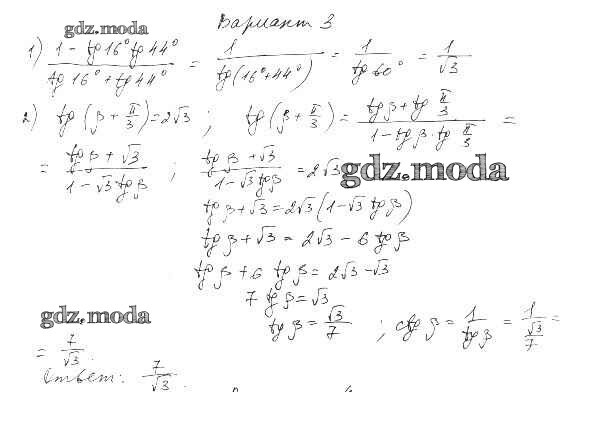 Вариант 3
gdz.moda
1) (1 - tg16° tg44°)/(tg16° + tg44°) = 1/(tg(16°+44°)) = 1/(tg60°) = 1/√3
2) tg(β + π/3) = 2√3 ; tg(β + π/3) = (tgβ + tg π/3)/(1 - tgβ · tg π/3) =
= (tgβ + √3)/(1 - √3 tgβ) ; (tgβ + √3)/(1 - √3 tgβ) = 2√3
gdz.moda
tgβ + √3 = 2√3(1 - √3 tgβ)
tgβ + √3 = 2√3 - 6 tgβ
tgβ + 6 tgβ = 2√3 - √3
7 tgβ = √3
gdz.moda
tgβ = √3/7 ; ctgβ = 1/tgβ = 1/(√3/7) =
= 7/√3.
Ответ: 7/√3.